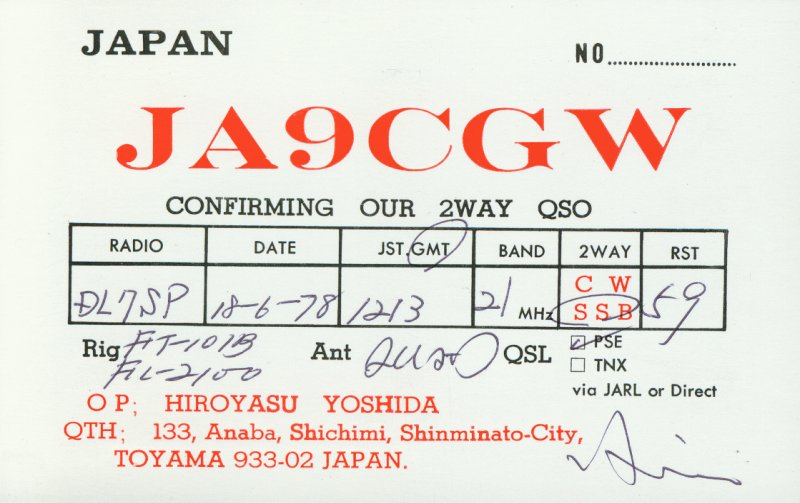 JAPAN
NO
JA9CGW
CONFIRMING OUR 2WAY QSO
RADIO DATE JST.GMT BAND 2WAY RST
DL7SP 18-6-78 1213 21 MHz CW SSB 59
Rig FT-101B Ant QSL PSE
FL-2100 TNX
via JARL or Direct
OP; HIROYASU YOSHIDA
QTH; 133, Anaba, Shichimi, Shinminato-City,
TOYAMA 933-02 JAPAN.